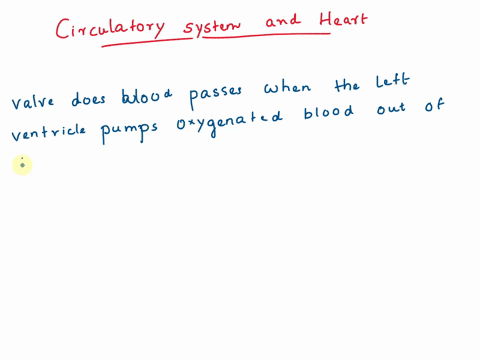 Circulatory system and Heart
valve does blood passes when the left
ventricle pumps oxygenated blood out of